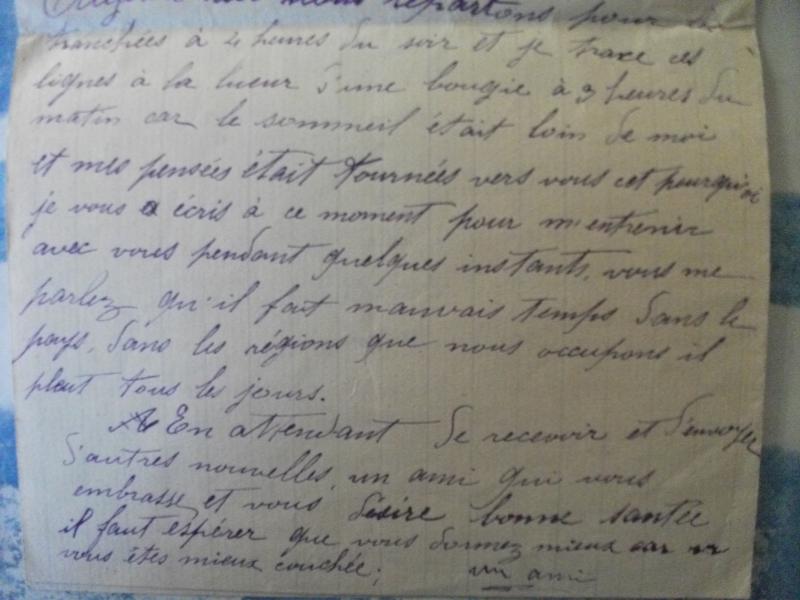 nous repartons pour
tranchées à 4 heures du soir et je trace ces
lignes à la lueur d'une bougie à 3 heures du
matin car le sommeil était loin de moi
et mes pensées était tournées vers vous cet pourquoi
je vous écris à ce moment pour m'entrenir
avec vous pendant quelques instants, vous me
parlez qu'il fait mauvais temps dans le
pays, dans les régions que nous occupons il
pleut tous les jours.
En attendant de recevoir et d'envoyer
d'autres nouvelles, un ami qui vous
embrasse et vous désire bonne santée
il faut espérer que vous dormez mieux car
vous êtes mieux couchée; un ami